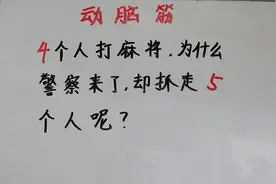 动脑筋
4个人打麻将,为什么
警察来了,却抓走5
个人呢?